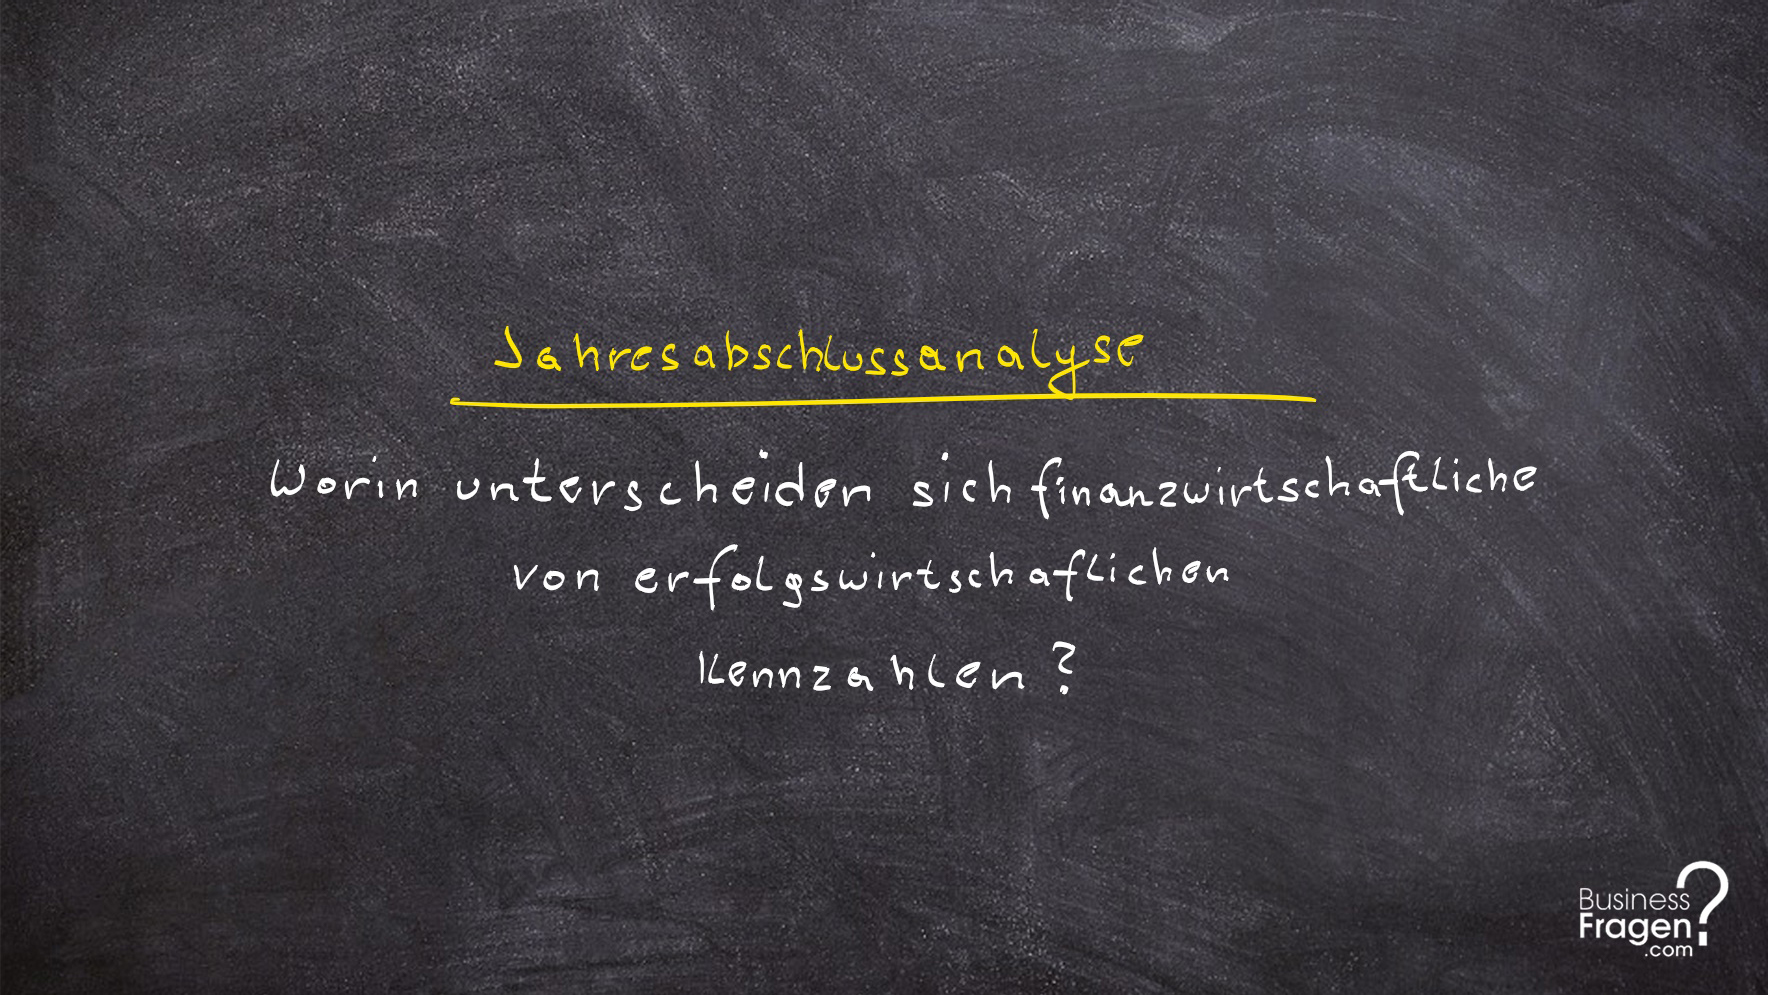 Jahresabschlussanalyse
Worin unterscheiden sich finanzwirtschaftliche
von erfolgswirtschaflichen
Kennzahlen?
Business
Fragen
.com